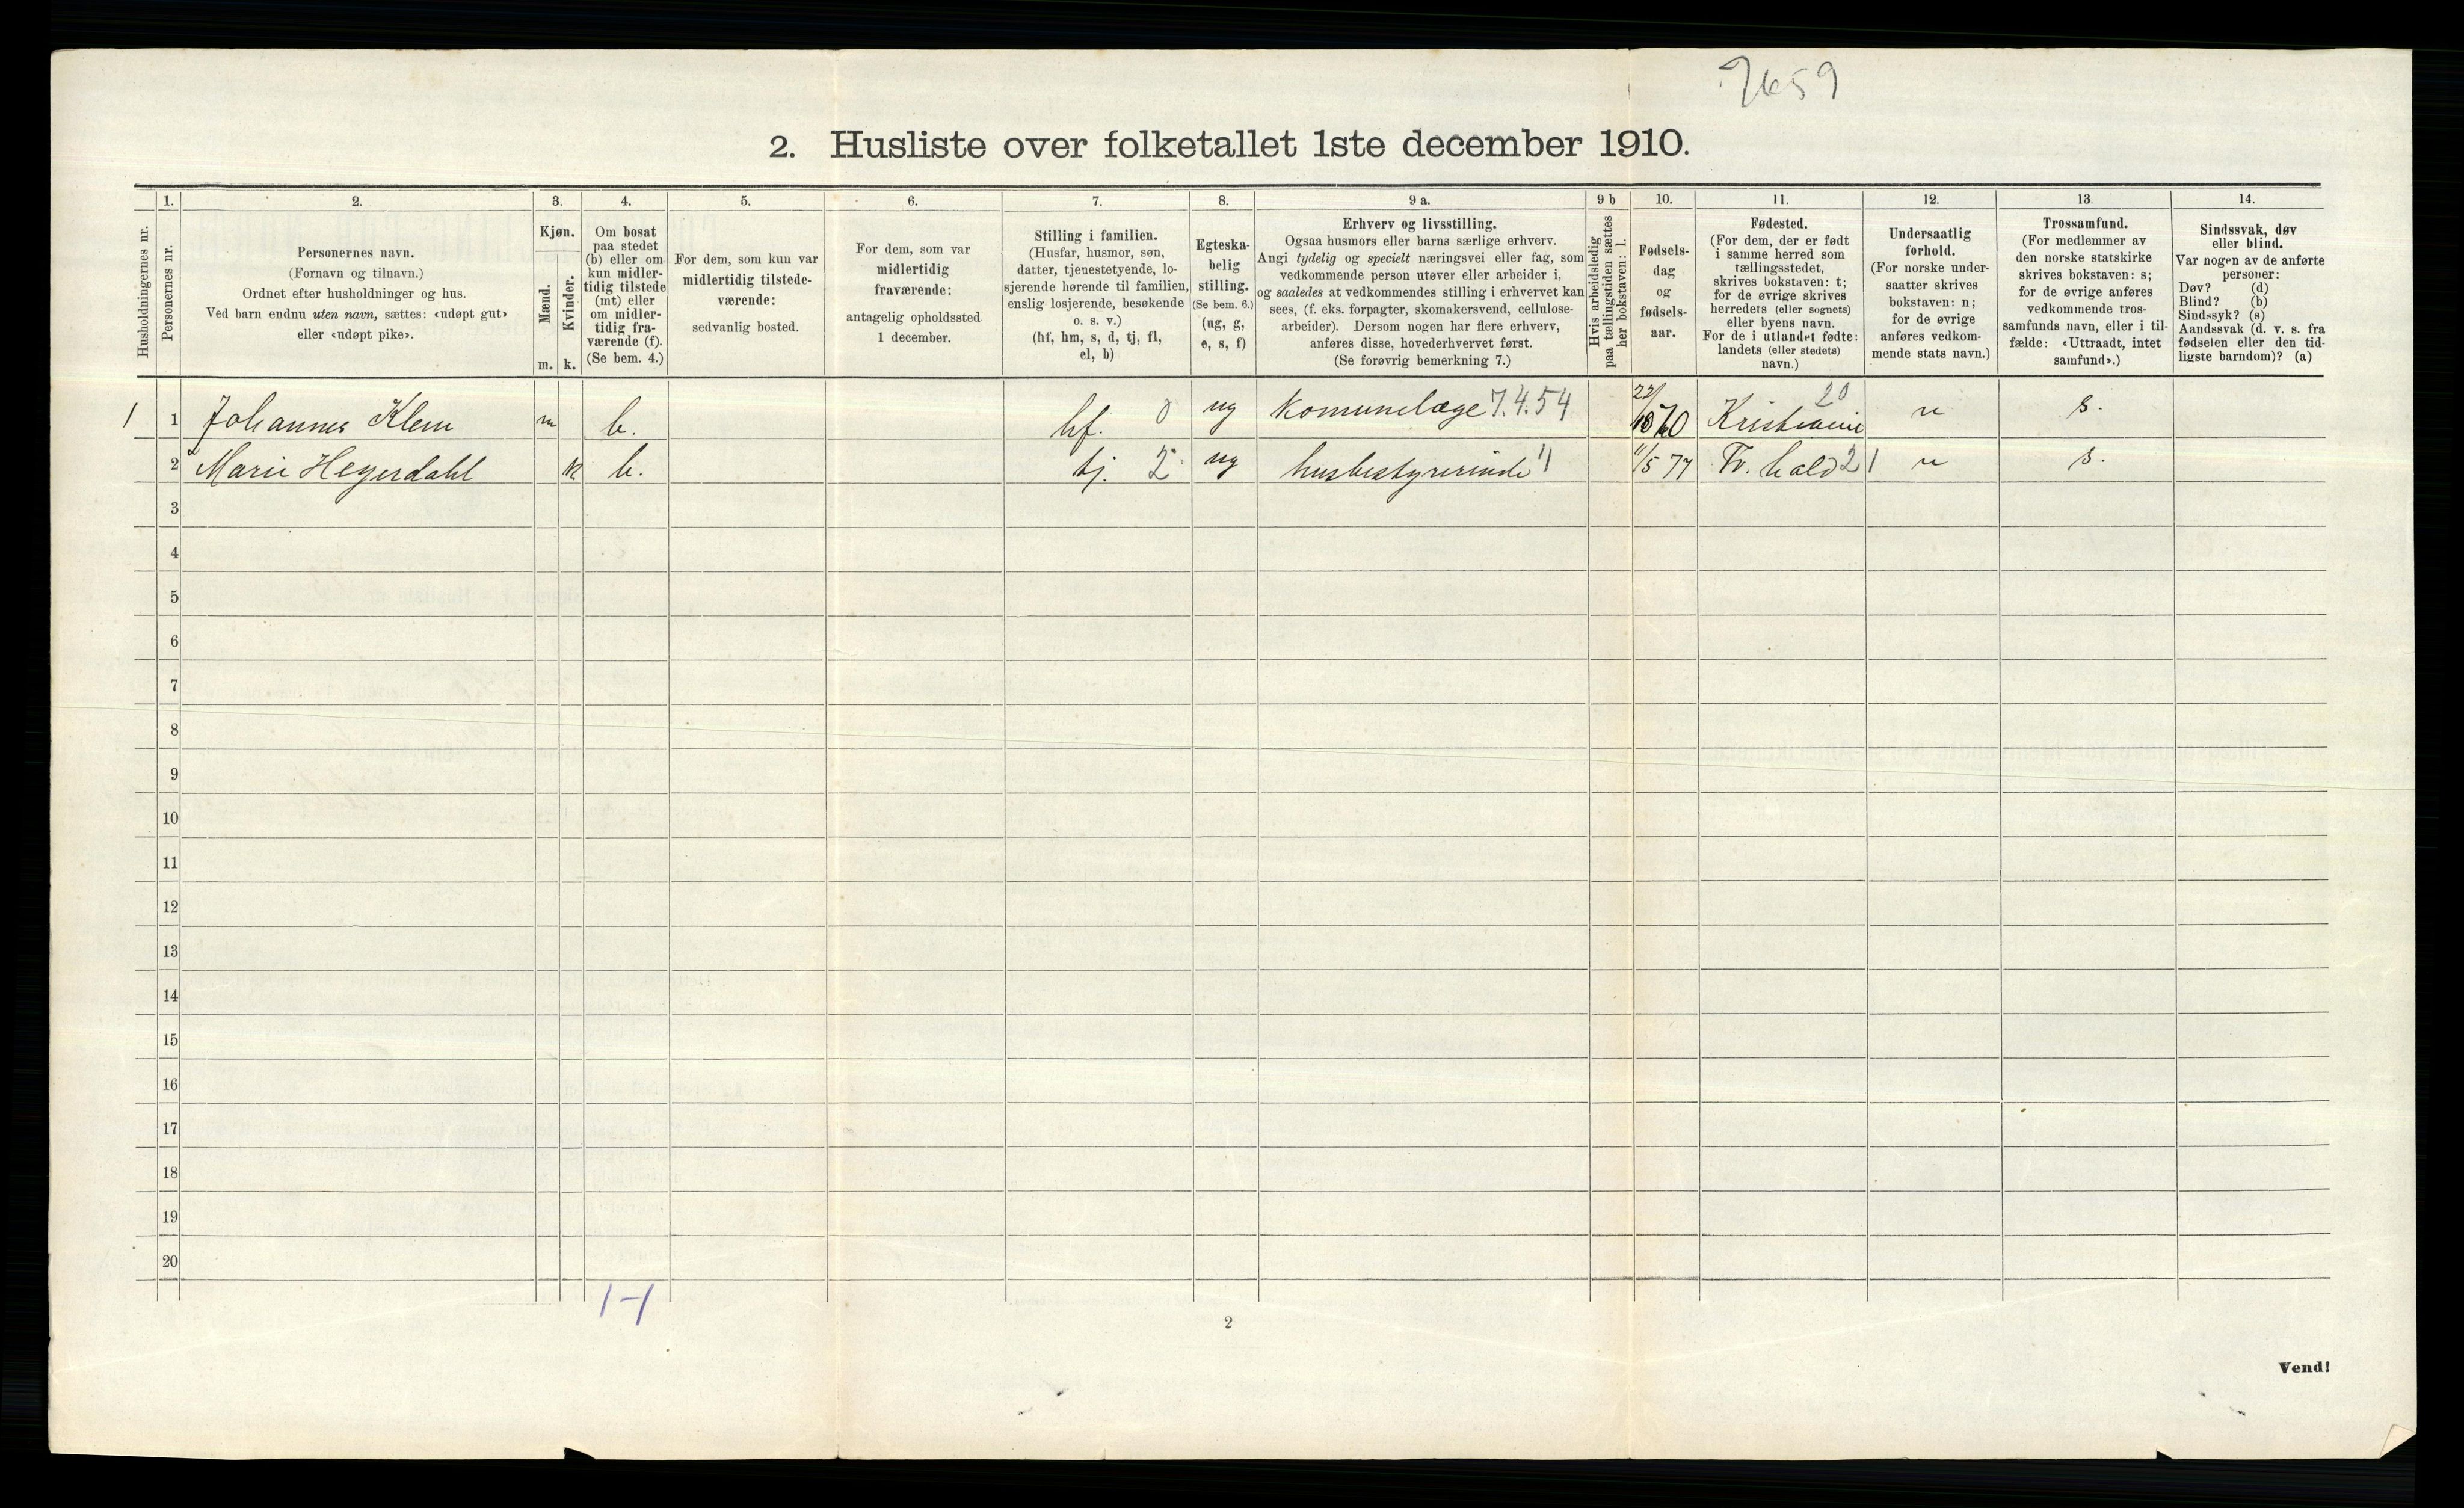 9659
2. Husliste over folketallet 1ste december 1910.
Husholdningernes nr.
1.
Personernes nr.
2.
Personernes navn.
(Fornavn og tilnavn.)
Ordnet efter husholdninger og hus.
Ved barn endnu uten navn, sættes: «udøpt gut»
eller «udøpt pike».
3.
Kjøn.
Mænd.
Kvinder.
m. k.
4.
Om bosat
paa stedet
(b) eller om
kun midler-
tidig tilstede
(mt) eller
om midler-
tidig fra-
værende (f).
(Se bem. 4.)
5.
For dem, som kun var
midlertidig tilstede-
værende:
sedvanlig bosted.
6.
For dem, som var
midlertidig
fraværende:
antagelig opholdssted
1 december.
7.
Stilling i familien.
(Husfar, husmor, søn,
datter, tjenestetyende, lo-
sjerende hørende til familien,
enslig losjerende, besøkende
o. s. v.)
(hf, hm, s, d, tj, fl,
el, b)
8.
Egteska-
belig
stilling.
(Se bem. 6.)
(ug, g,
e, s, f)
9 a.
Erhverv og livsstilling.
Ogsaa husmors eller barns særlige erhverv.
Angi tydelig og specielt næringsvei eller fag, som
vedkommende person utøver eller arbeider i,
og saaledes at vedkommendes stilling i erhvervet kan
sees, (f. eks. forpagter, skomakersvend, cellulose-
arbeider). Dersom nogen har flere erhverv,
anføres disse, hovederhvervet først.
(Se forøvrig bemerkning 7.)
9 b
Hvis arbeidsledig
paa tællingstiden sættes
her bokstaven: l.
10.
Fødsels-
dag
og
fødsels-
aar.
11.
Fødested.
(For dem, der er født
i samme herred som
tællingsstedet,
skrives bokstaven: t;
for de øvrige skrives
herredets (eller sognets)
eller byens navn.
For de i utlandet fødte:
landets (eller stedets)
navn.)
12.
Undersaatlig
forhold.
(For norske under-
saatter skrives
bokstaven: n;
for de øvrige
anføres vedkom-
mende stats navn.)
13.
Trossamfund.
(For medlemmer av
den norske statskirke
skrives bokstaven: s;
for de øvrige anføres
vedkommende tros-
samfunds navn, eller i til-
fælde: «Uttraadt, intet
samfund».)
14.
Sindssvak, døv
eller blind.
Var nogen av de anførte
personer:
Døv? (d)
Blind? (b)
Sindssyk? (s)
Aandssvak (d. v. s. fra
fødselen eller den tid-
ligste barndom)? (a)
1 1 Johannes Klem m b. hf. 0 ug Komunelæge 7.4.54 22/10 70 Kristiania 20 n s.
2 Marie Heyerdahl k b. tj. 2 ug husbestyrerinde " 11/5 77 Fr. hald 21 n s.
3
4
5
6
7
8
9
10
11
12
13
14
15
16
17
18
19
20
1-1
2
Vend!